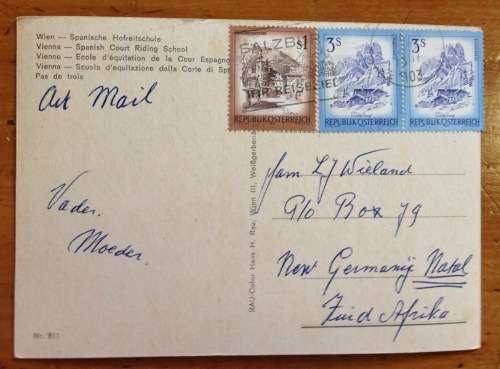 Wien — Spanische Hofreitschule
Vienna — Spanish Court Riding School
Vienne — Ecole d'équitation de la Cour Espagno
Vienna — Scuola d'equitazione della Corte di Sp
Pas de trois
Air Mail
Vader.
Moeder.
Nr. 811
RAU-Color Hans H. Rau, Wien III, Weißgerber
S1
REPUBLIK ÖSTERREICH
3S
REPUBLIK ÖSTERREICH
3S
REPUBLIK ÖSTERREICH
SALZB
IHR REISEZIEL
Fam LJ Wieland
P/o Box 79
New Germany Natal
Zuid Afrika